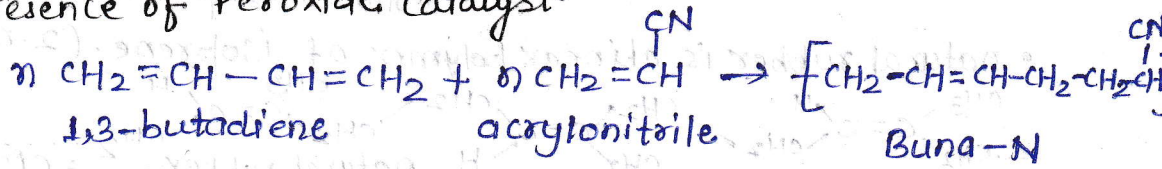 esence of Peroxide catalyst
CN CN
n) CH2 = CH - CH = CH2 + n) CH2 = CH → [CH2-CH=CH-CH2-CH2-CH
1,3-butadiene acrylonitrile Buna-N